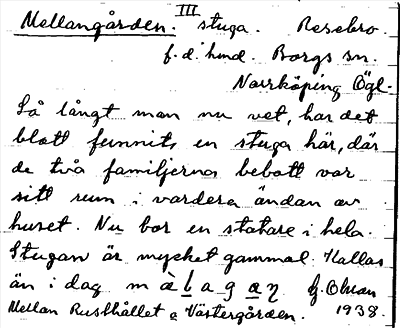 III
Mellangården. stuga. Resebro.
f. d. hmd. Borgs sn.
Norrköping Ögl.
Så långt man nu vet, har det
blott funnits en stuga här, där
de två familjerna bebott var
sitt rum i vardera ändan av
huset. Nu bor en statare i hela.
Stugan är mycket gammal. Kallas
än i dag m à l a g a η G. Olman
Mellan Rusthållet o Västergården. 1938.